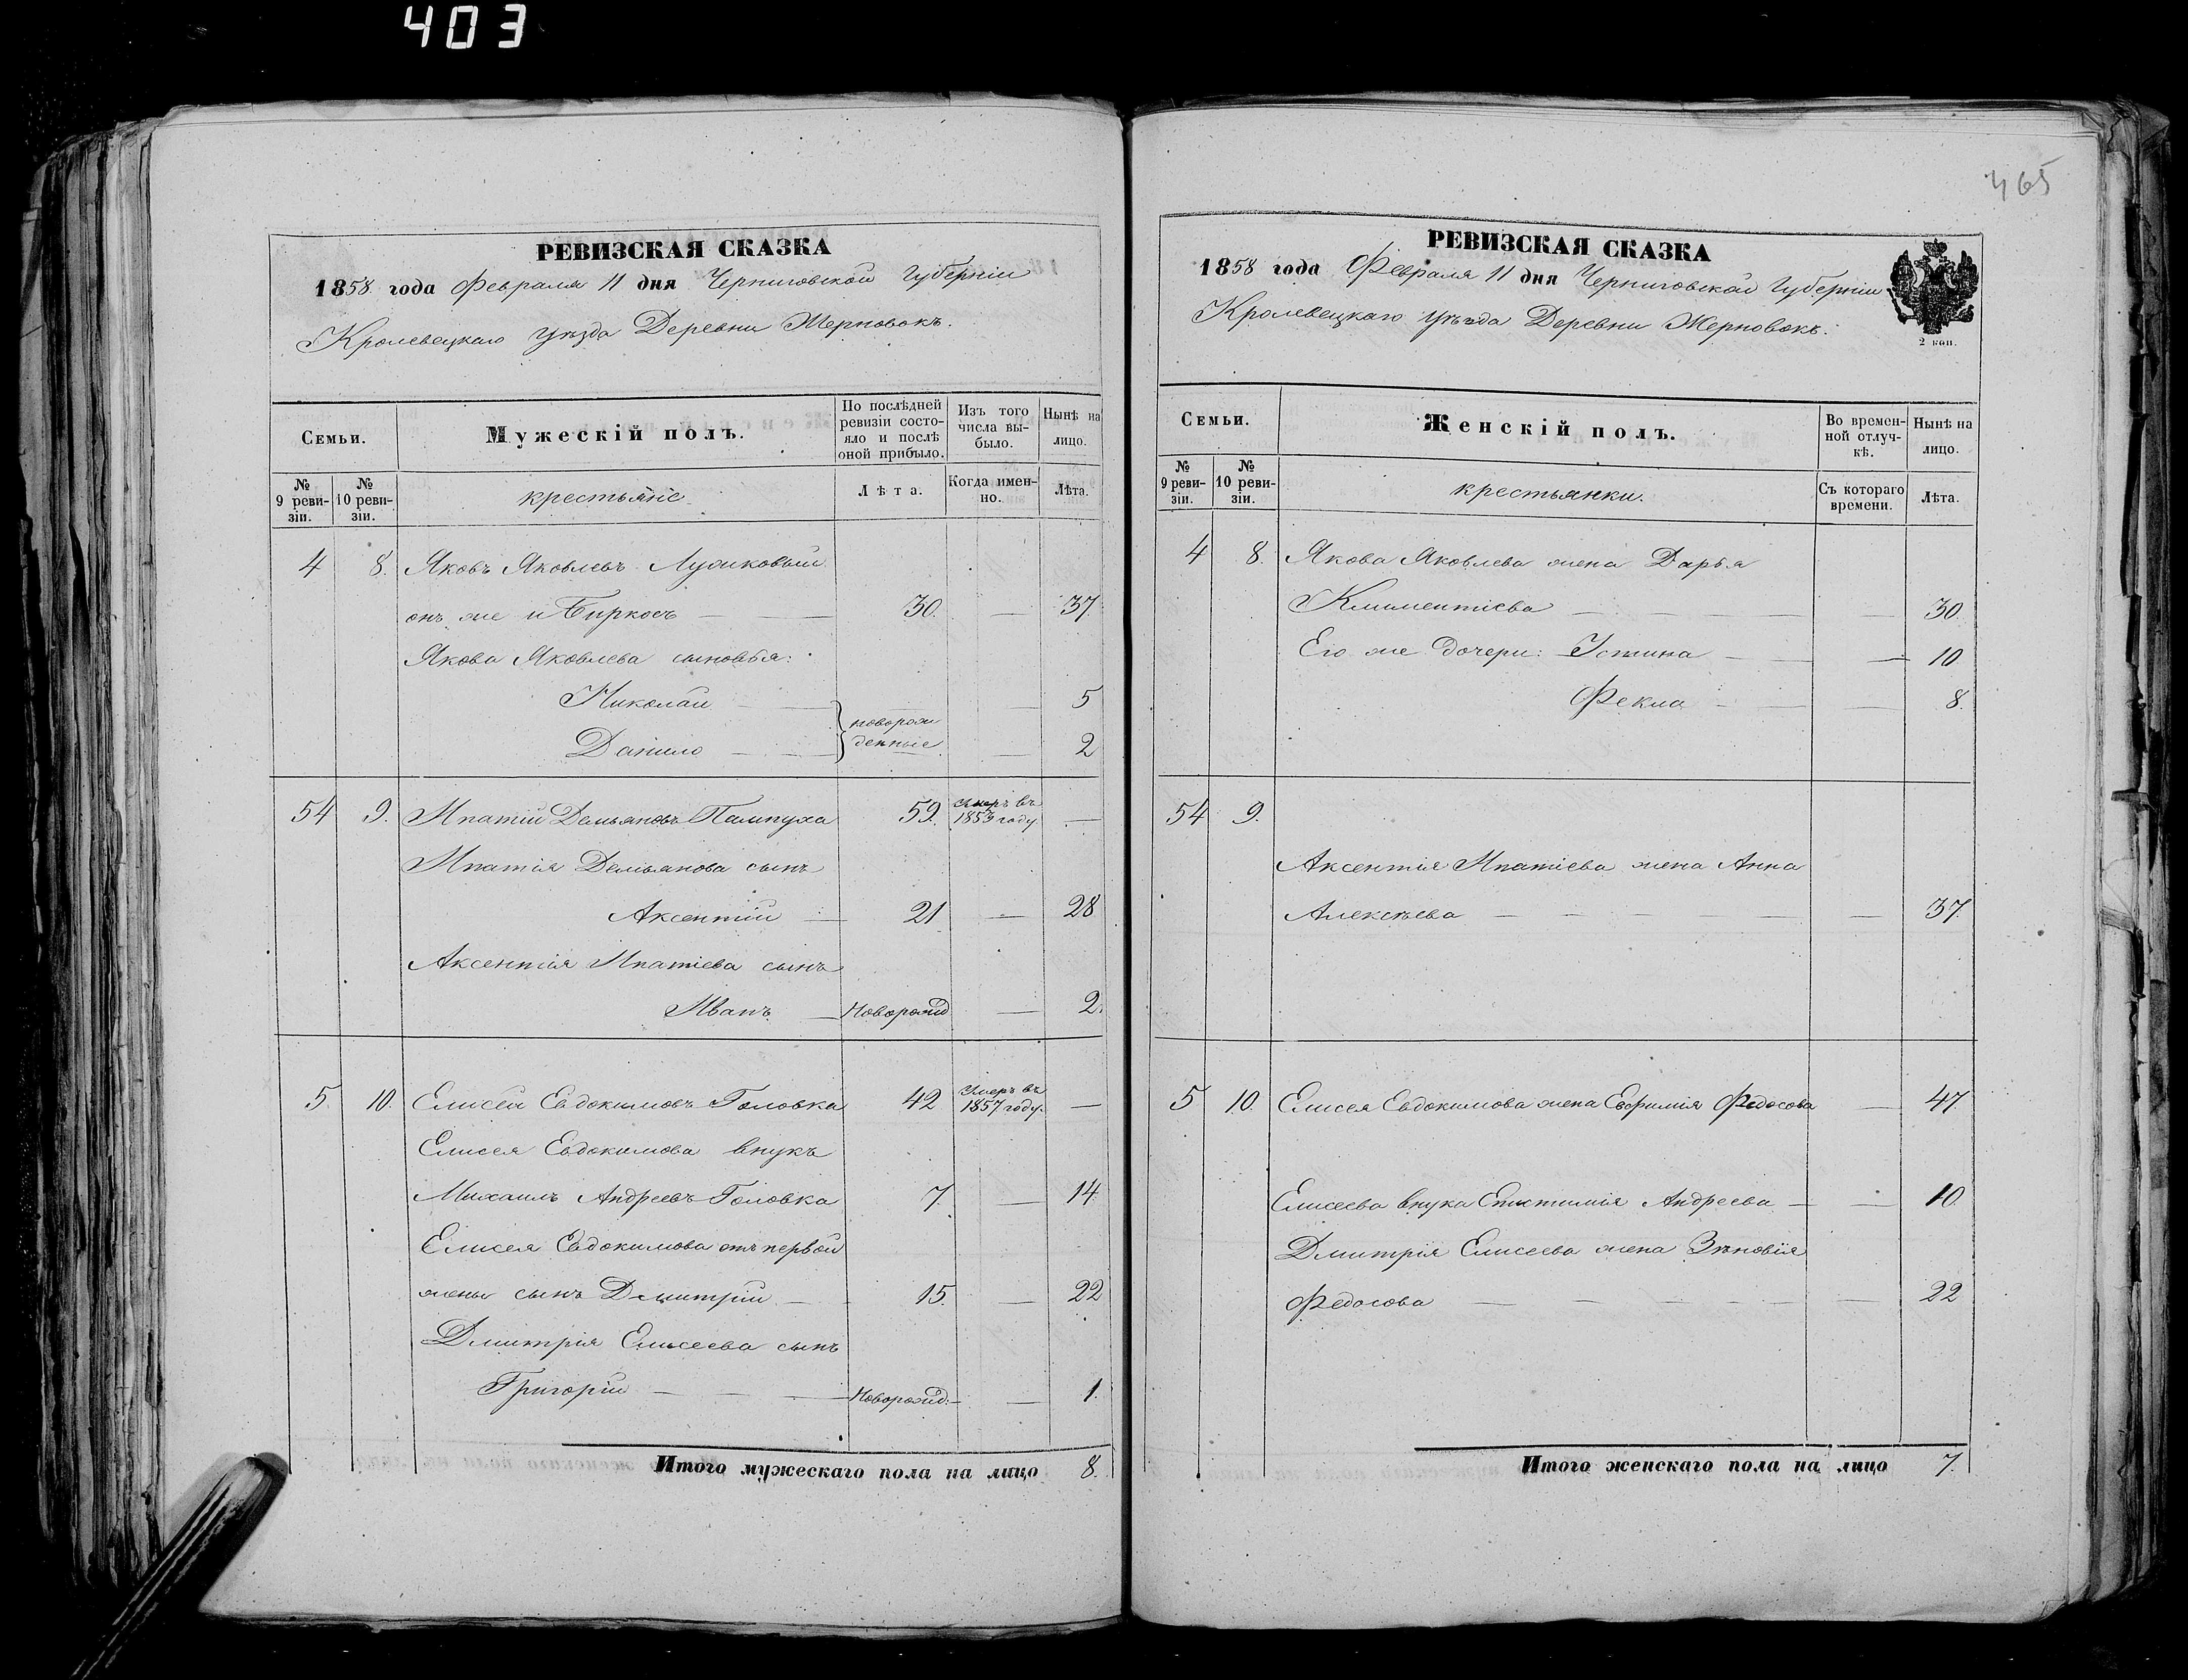 403
465
РЕВИЗСКАЯ СКАЗКА
1858 года Февраля 11 дня Черниговской Губерніи
Кролевецкаго Уѣзда Деревни Жерновокъ.
Семьи.
Мужескій полъ.
По послѣдней ревизіи состо-
яло и послѣ оной прибыло.
Изъ того числа вы-
было.
Нынѣ на лицо.
№ 9 реви-
зіи.
№ 10 реви-
зіи.
крестьяне
Лѣта.
Когда имен-
но.
Лѣта.
4 8. Яковъ Яковлевъ
онъ же и Бирковъ — — 30. — 37.
Якова Яковлева сыновья:
Николай — — — 5
Данило — — } новорож
денные — 2
54 9. Ипатій Демьяновъ Пампуха 59. умеръ въ
1853 году —
Ипатія Демьянова сынъ
Аксентій — 21 — 28
Аксентія Ипатіева сынъ
Иванъ — Новорожд — 2.
5. 10. Елисей Евдокимовъ Головка 42 Умеръ въ
1857 году. —
Елисея Евдокимова внукъ
Михаилъ Андреевъ Головка 7. — 14
Елисея Евдокимова отъ первой
жены сынъ Дмитрій — 15. — 22
Дмитрія Елисеева сынъ
Григорій — — — Новорожд: — — 1.
Итого мужескаго пола на лицо 8.
РЕВИЗСКАЯ СКАЗКА
1858 года Февраля 11 дня Черниговской Губерніи
Кролевецкаго Уѣзда Деревни Жерновокъ.
2 коп.
Семьи.
Женскій полъ.
Во времен-
ной отлуч-
кѣ.
Нынѣ на лицо.
№ 9 реви-
зіи.
№ 10 реви-
зіи.
крестьянки.
Съ котораго времени.
Лѣта.
4 8. Якова Яковлева жена Дарья
Климентіева — — — — 30.
Его же дочери: Устина — — — 10
Фекла — — — 8.
54 9.
Аксентія Ипатіева жена Анна
Алексѣева — — — — — 37.
5 10. Елисея Евдокимова жена Евфимія Федосова — 47
Елисеева внука Епистимія Андреева — — 10.
Дмитрія Елисеева жена Зѣновія
Федосова — — — — — 22
Итого женскаго пола на лицо 7.